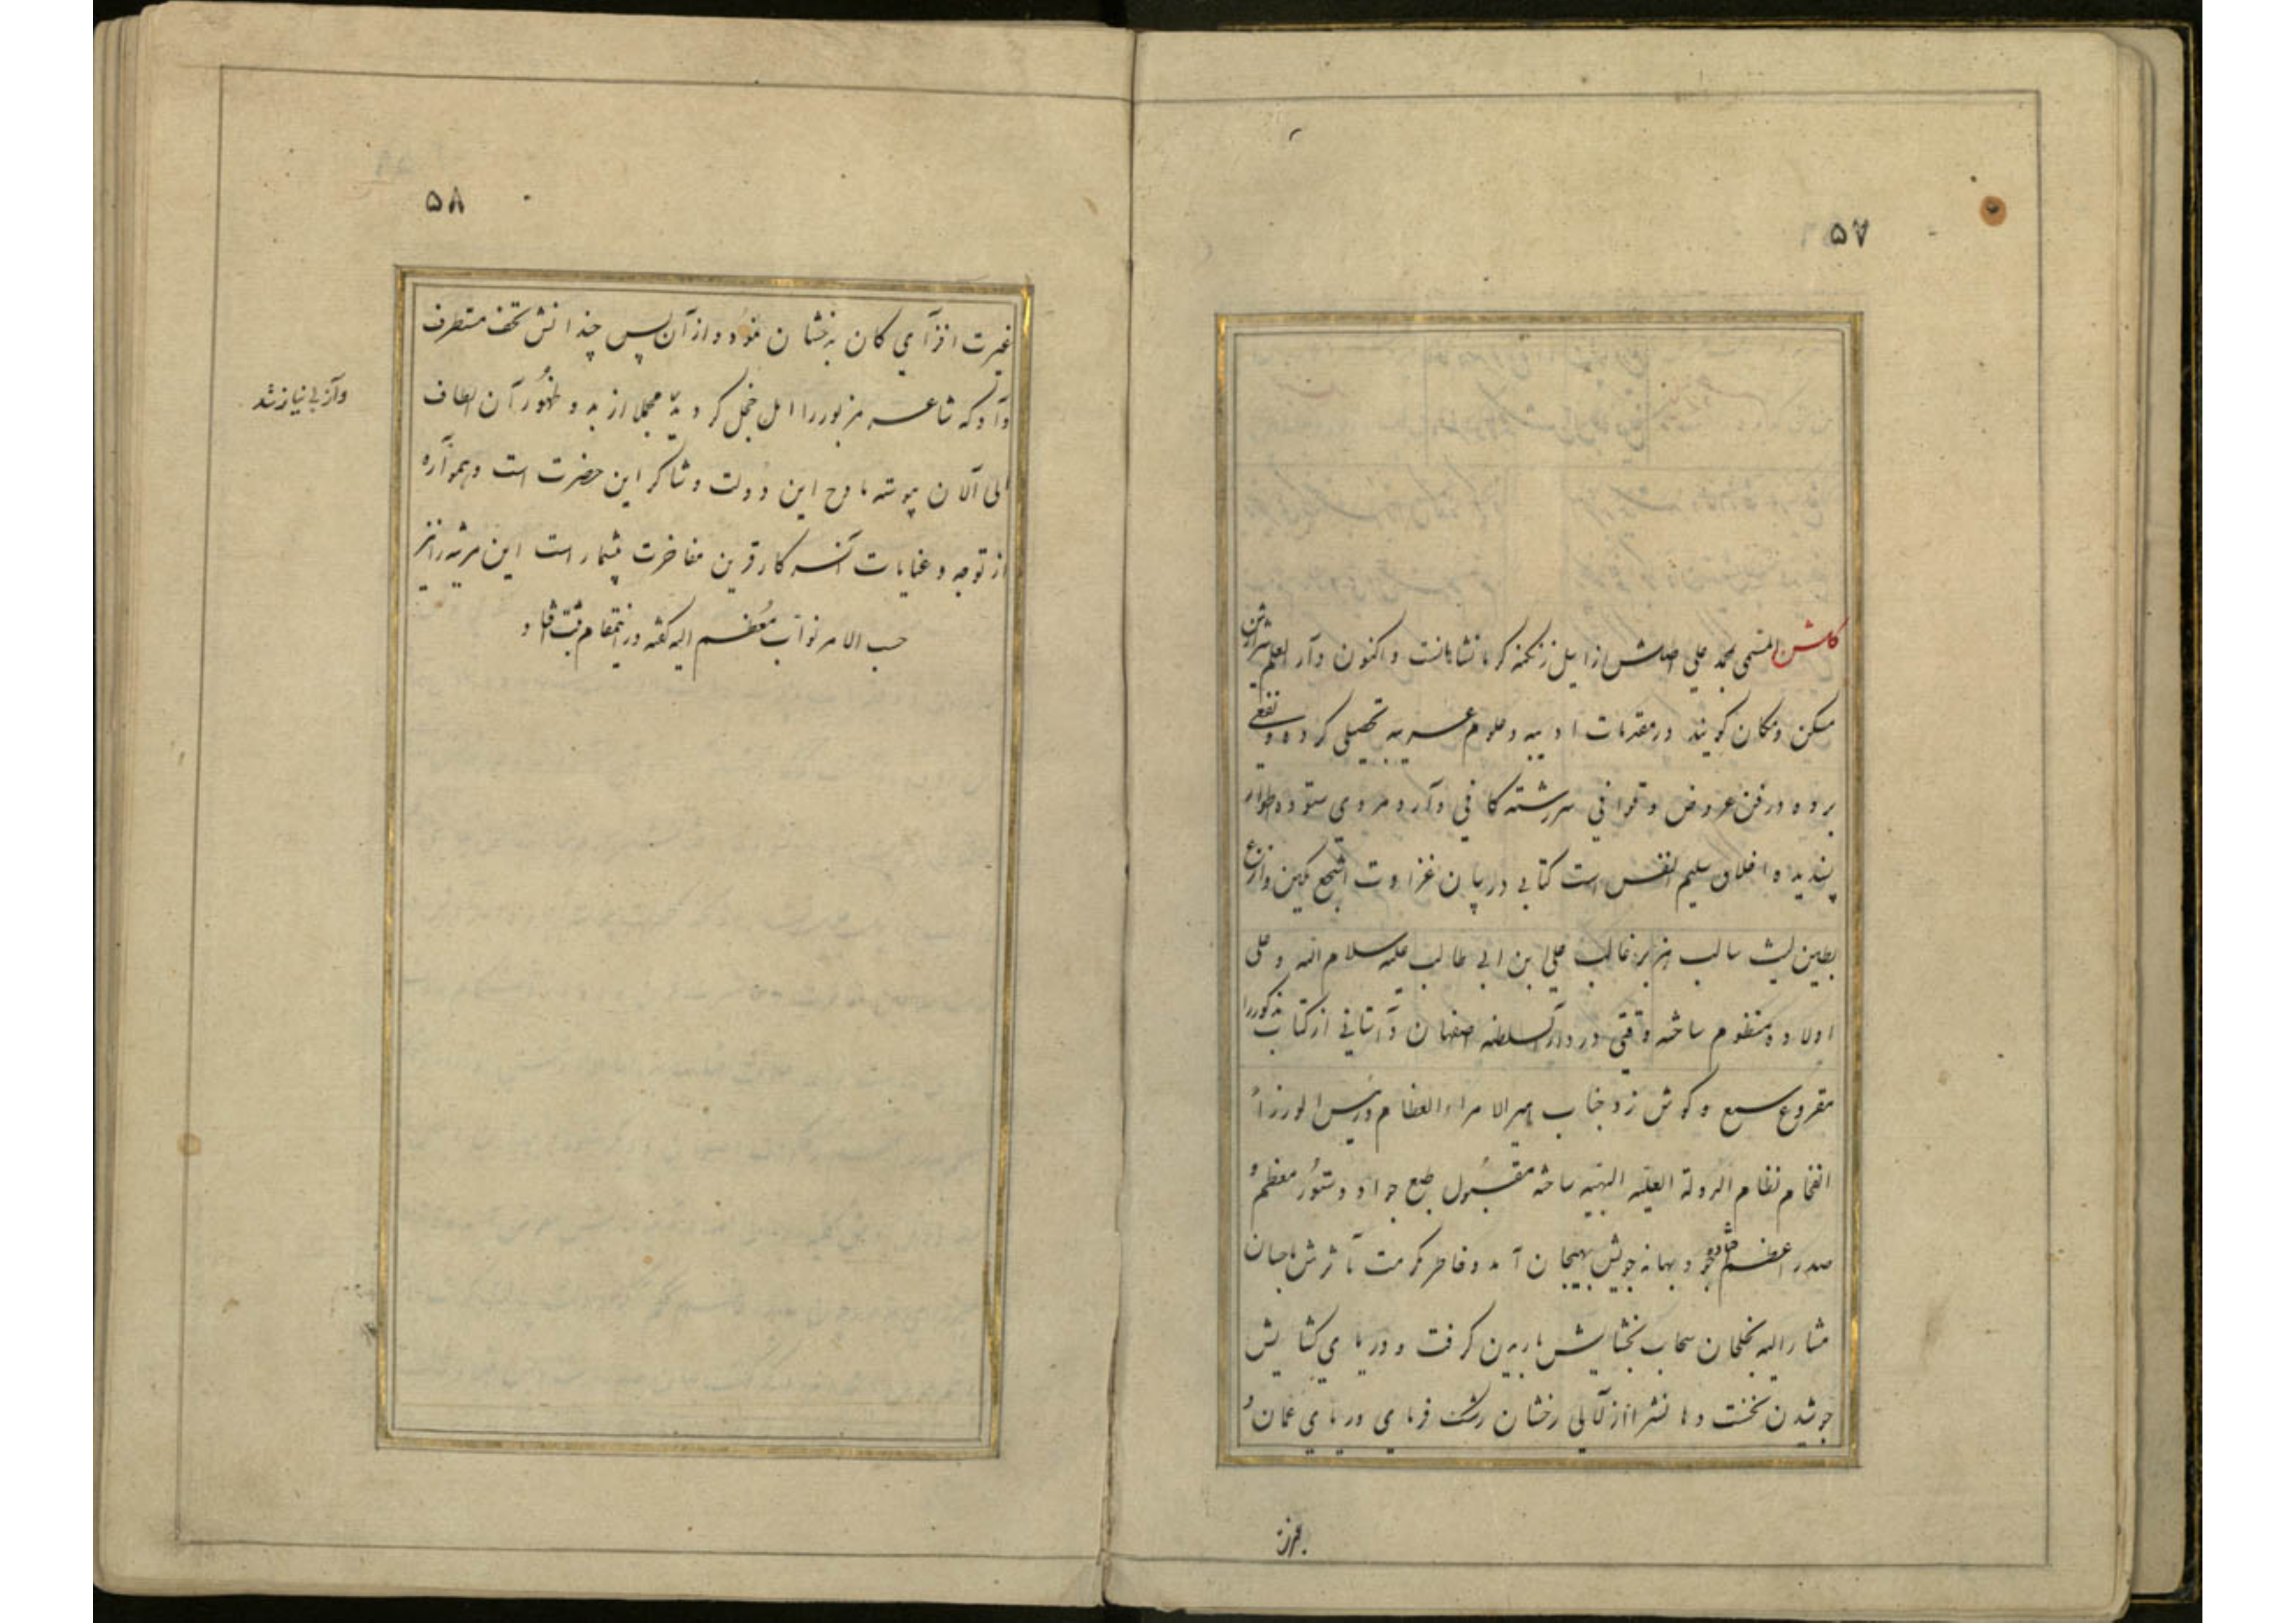 ۵۷
گلشن المسمی محمد علی اصلش از ایل زنگنه کرمانشاهانست و اکنون دار العلم شیراز ش
مسکن و مکان گویند در مقدمات ادبیه و علوم عربیه تحصیلی کرده و نفعی
برده در فن عروض و قوافی سررشته کافی دارد مردی ستوده اطوار
پسندیده اخلاق سلیم النفس است کتابی در بیان غزاوت اشجع مکین و انزع
بطین لیث سالب هزبر غالب علی بن ابی طالب علیه سلام الله و علی
اولاده منظوم ساخته وقتی در دار السلطنه اصفهان داستانی از کتاب مذکور را
مقروع سمع و گوش زد جناب امیر الامراء العظام و رئیس الوزراء
الفخام نظام الدولة العلیه البهیه ساخته مقبول طبع جواد دستور معظم و
صدر اعظم بهانه جویش بهیجان آمد و خاطر مکرمت مآثرش باحسان
مشار الیه بخلجان سحاب بخشایش باریدن گرفت و دریای گشایش
جوشیدن نخست دهانش را از لآلی رخشان رشک فرمای دریای عمان و
۵۸
غیرت افزای کان بدخشان نمود و از آن پس چندانش تحف مستطرف
داد که شاعر مزبور را امل خجل گردید مجملا از بدو ظهور آن الطاف
و از بی نیاز شد
الی الآن پیوسته مادح این دولت و شاکر این حضرت است و همواره
از توجه و عنایات آنسرکار قرین مفاخرت بیشمار است این مرثیه را نیز
حسب الامر نواب معظم الیه گفته در اینمقام ثبت افتاد